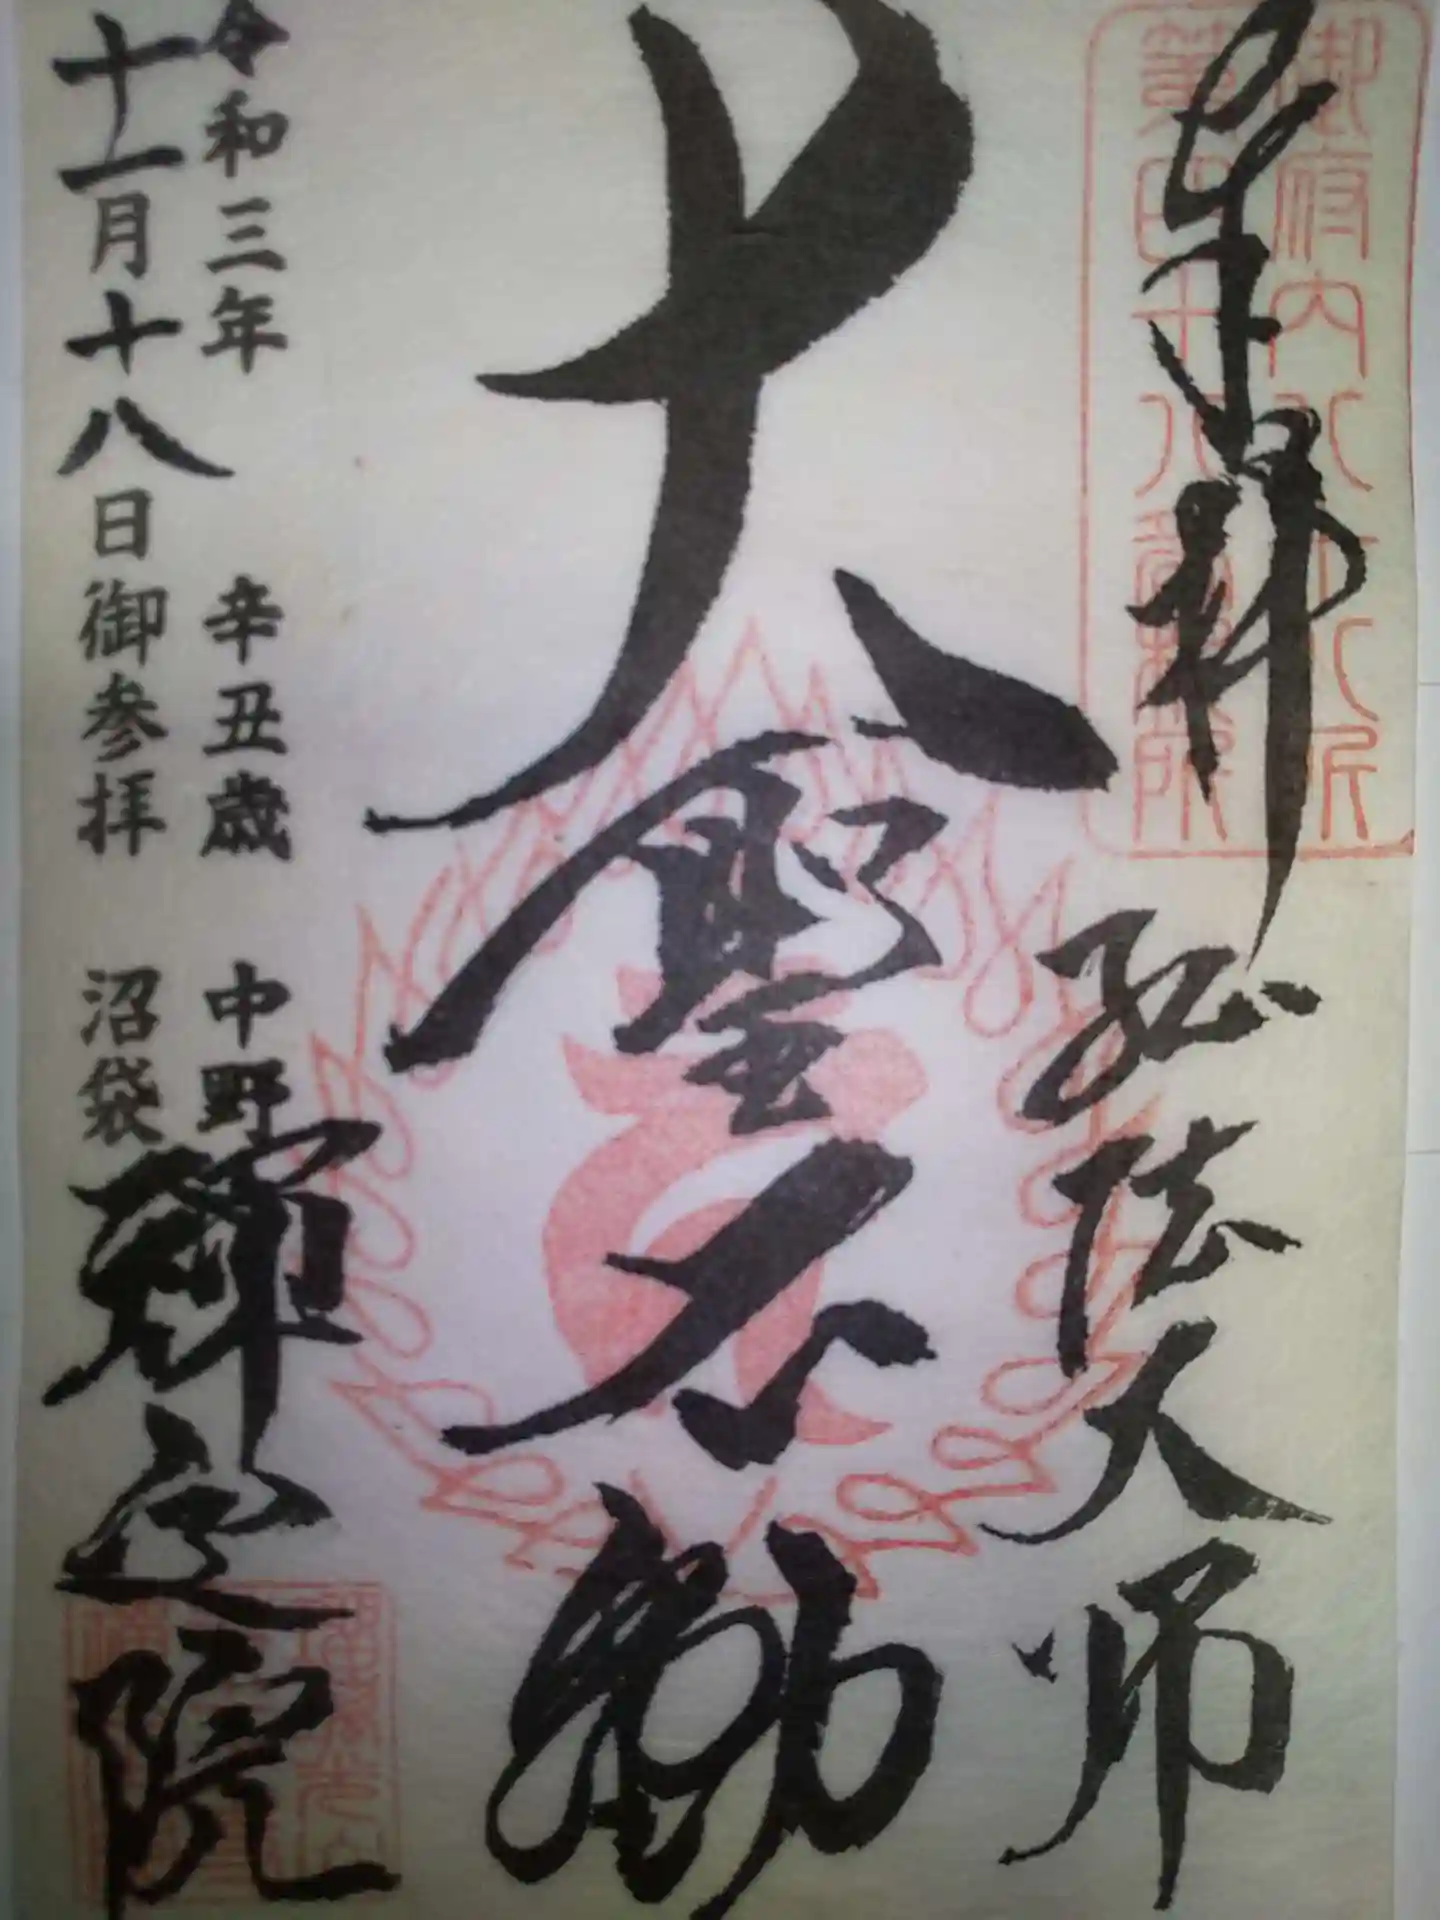 奉拝
弘法大師
御府内八十八ヶ所
第四十八番札所
大聖不動
令和三年 辛丑歳 中野
十一月十八日御参拝 沼袋
禅定院